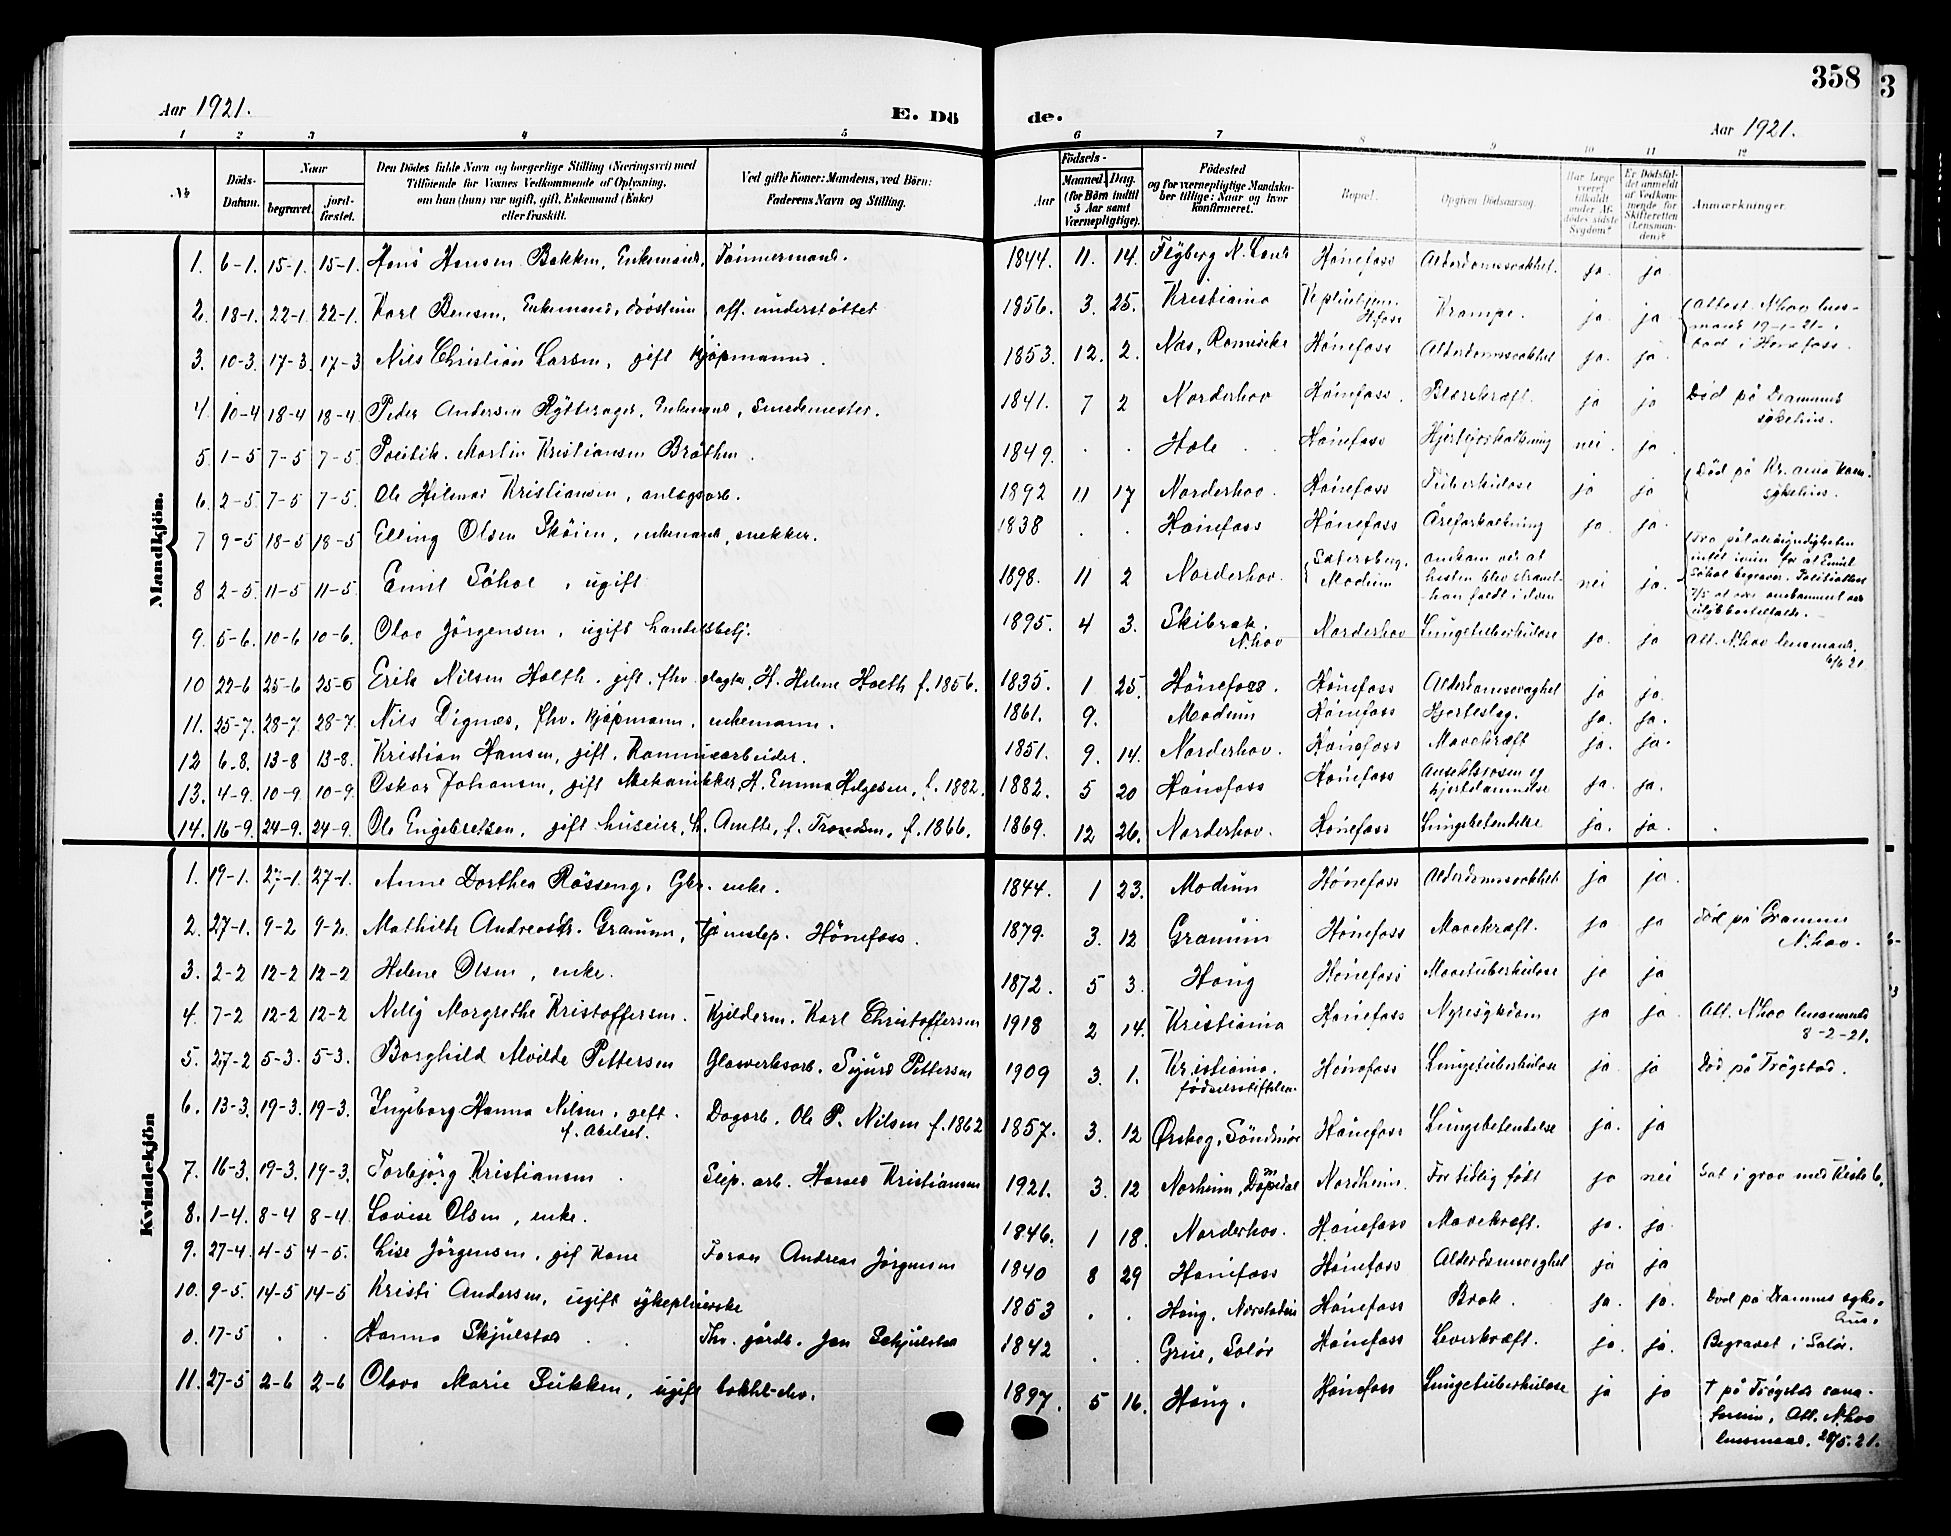 358
3
Aar 1921.
E. Dö de.
Aar 1921.
1 2 3 4 5 6 7 8 9 10 11 12
№
Döds-Datum.
Naar
begravet. jord-fæstet.
Den Dödes fulde Navn og borgerlige Stilling (Næringsvei) med
Tilföiende for Voxnes Vedkommende af Oplysning,
om han (hun) var ugift, gift, Enkemand (Enke)
eller fraskilt.
Ved gifte Koner: Mandens, ved Börn:
Faderens Navn og Stilling.
Födsels-
Aar
Maaned. Dag.
(for Börn indtil
5 Aar samt
Værnepligtige).
Födested
og for værnepligtige Mandska-
ber tillige: Naar og hvor
konfirmeret.
Bopæl.
Opgiven Dödsaarsag.
Har læge
været
tilkaldt
under Af-
dödes sidste
Sygdom?
Er Dödsfal-
det anmeldt
af Vedkom-
mende for
Skifteretten
(Lensman-
den)?
Anmærkninger.
Mandkjön.
1. 6-1. 15-1. 15-1. Hans Hansen Bakken, Enkemand, Tömmermand. 1844. 11. 14. Flyberg N. Land Hönefoss Alderdomssvakhet. ja ja
2. 18-1. 22-1. 22-1. Karl Bensen, Enkemand, off. understöttet 1856. 3. 25. Kristiania Hfoss Krampe. ja. ja. Attest. N.hov lens-
mand 19-1-21.
3. 10-3. 17-3. 17-3 Nils Christian Larsen, gift kjöpmann. 1853. 12. 2. Nes, Romerike Hönefoss Alderdomssvakhet ja. ja. Död i Hönefoss.
4. 10-4 18-4 18-4 Peder Andersen Rytterager, Enkemand, Smedemester. 1841. 7 2 Norderhov Hönefoss. Blærekræft. ja ja Död på Drammens
sykehus.
5. 1-5 7-5 7-5. Martin Kristiansen Bråthen. 1849. . . Hole Hönefoss Hjerteforkalkning nei. ja.
6. 2-5. 7-5 7-5. Ole Hilmar Kristiansen, anlegsarb. 1892 11 17 Norderhov. Hönefoss Tuberkulose ja ja Död på Kr.ania Kom.
sykehus.
7 9-5 18-5 18-5. Elling Olsen Sköien, enkemand, snekker. 1838 . . Hönefoss Hönefoss Åreforkalkning ja. ja.
8 2-5. 11-5 11-5. Emil Söhol, ugift 1898. 11 2 Norderhov. Modum omkom ved at
hesten blev
han faldt i elven nei ja.
9. 5-6. 10-6 10-6. Olav Jörgensen, ugift handelsbetj. 1895. 4 3. Skibrak.
N.hov Norderhov Lungetuberkulose ja. ja Att. N.hov lensmand.
6/6 21
10 22-6 25-6 25-6 Erik Nilsen Holth. gift. fhv. slagter, H. Helene Holth f. 1856. 1835. 1 25. Hönefoss. Hönefoss Alderdomssvaghet ja ja.
11. 25-7. 28-7. 28-7. Nils Dignes, fhv. kjöpmann, enkemann. 1861. 9. Modum Hönefoss Hjerteslag. ja. ja.
12 6-8. 13-8 13-8. Kristian Hansen, gift. Kommunearbeider. 1851. 9. 14. Norderhov. Hönefoss Mavekræft ja. ja.
13. 4-9. 10-9. 10-9. Oskar Johansen, gift Mekanikker, H. Emma Helgesen, f. 1882. 1882. 5 20 Hönefoss Hönefoss Ansiktsrosen og
hjertelammelse ja. ja.
14. 16-9. 24-9. 24-9. Ole Engebretsen, gift huseier, h. Anette, f. Trondsen, f. 1866. 1869. 12 26. Norderhov. Hönefoss Lungebetendelse ja. ja.
Kvindekjön
1. 19-1. 27-1. 27-1. Anne Dorthea Rösseng, Gbr. enke. 1844. 1 23. Modum Hönefoss Alderdomssvakhet ja ja.
2. 27-1. 9-2 9-2. Mathilde Andreasdtr. Gramum, tjenestep. Hönefoss. 1879. 3. 12 Gramum Hönefoss Mavekræft. ja ja Död på Gramum
N.hov.
3. 2-2 12-2 12-2 Helene Olsen, enke. 1872. 5 3. Haug Hönefoss Mavetuberkulose ja ja
4. 7-2 12-2 12-2 Nelly Margrethe Kristoffersen. Kjelderm. Karl Christoffersen 1918 2 14. Kristiania Hönefoss Nyresygdom ja ja. Att. N.hov lensmand
8-2-21.
5. 27-2 5-3. 5-3. Borghild Alvilde Pettersen Glasverksarb. Sigurd Pettersen 1909 3. 1. Kristiania.
födselsstiftelse. Hönefoss Lungetuberkulose ja. ja Död på Trögstad.
6. 13-3. 19-3. 19-3. Ingeborg Hanna Nilsen, gift.
f. Akelset. Dagarb. Ole P. Nilsen f. 1862 1857. 3. 12 Ørskog, Söndmör Hönefoss Lungebetendelse ja. ja
7. 16-3. 19-3. 19-3. Torbjörg Kristiansen Slip. arb. Harald Kristiansen 1921. 3. 12 Norheim, Nordheim. For tidlig födt ja nei Sat i grav med kiste 6.
8. 1-4. 8-4 8-4. Lovise Olsen, enke. 1846. 1 18. Norderhov. Hönefoss Mavekræft. ja. ja.
9. 27-4. 4-5 4-5. Lise Jörgensen, gif Kone Andreas Jörgensen 1840 8 29 Hönefoss Hönefoss Alderdomssvaghet ja ja
10. 9-5. 14-5 14-5 Kristi Andersen, ugift sykepleierske 1853 . . Haug, Norstaden Hönefoss Brok. ja. ja. Död på Drammens syke-
hus.
0. 17-5 . . Hanna Skjulstad Fhv. gårdb. Jan Sckjulstad 1842 . . Grue, Solör Hönefoss Leverkræft. ja. ja. Begravet i Solör.
11. 27-5 2-6 2-6 Olava Marie Bukken, ugift 1897. 5 16. Haug. Hönefoss Lungetuberkulose ja ja † på Trögstds sana-
torium, Att. N.hov
lensmand. 28/5. 21.